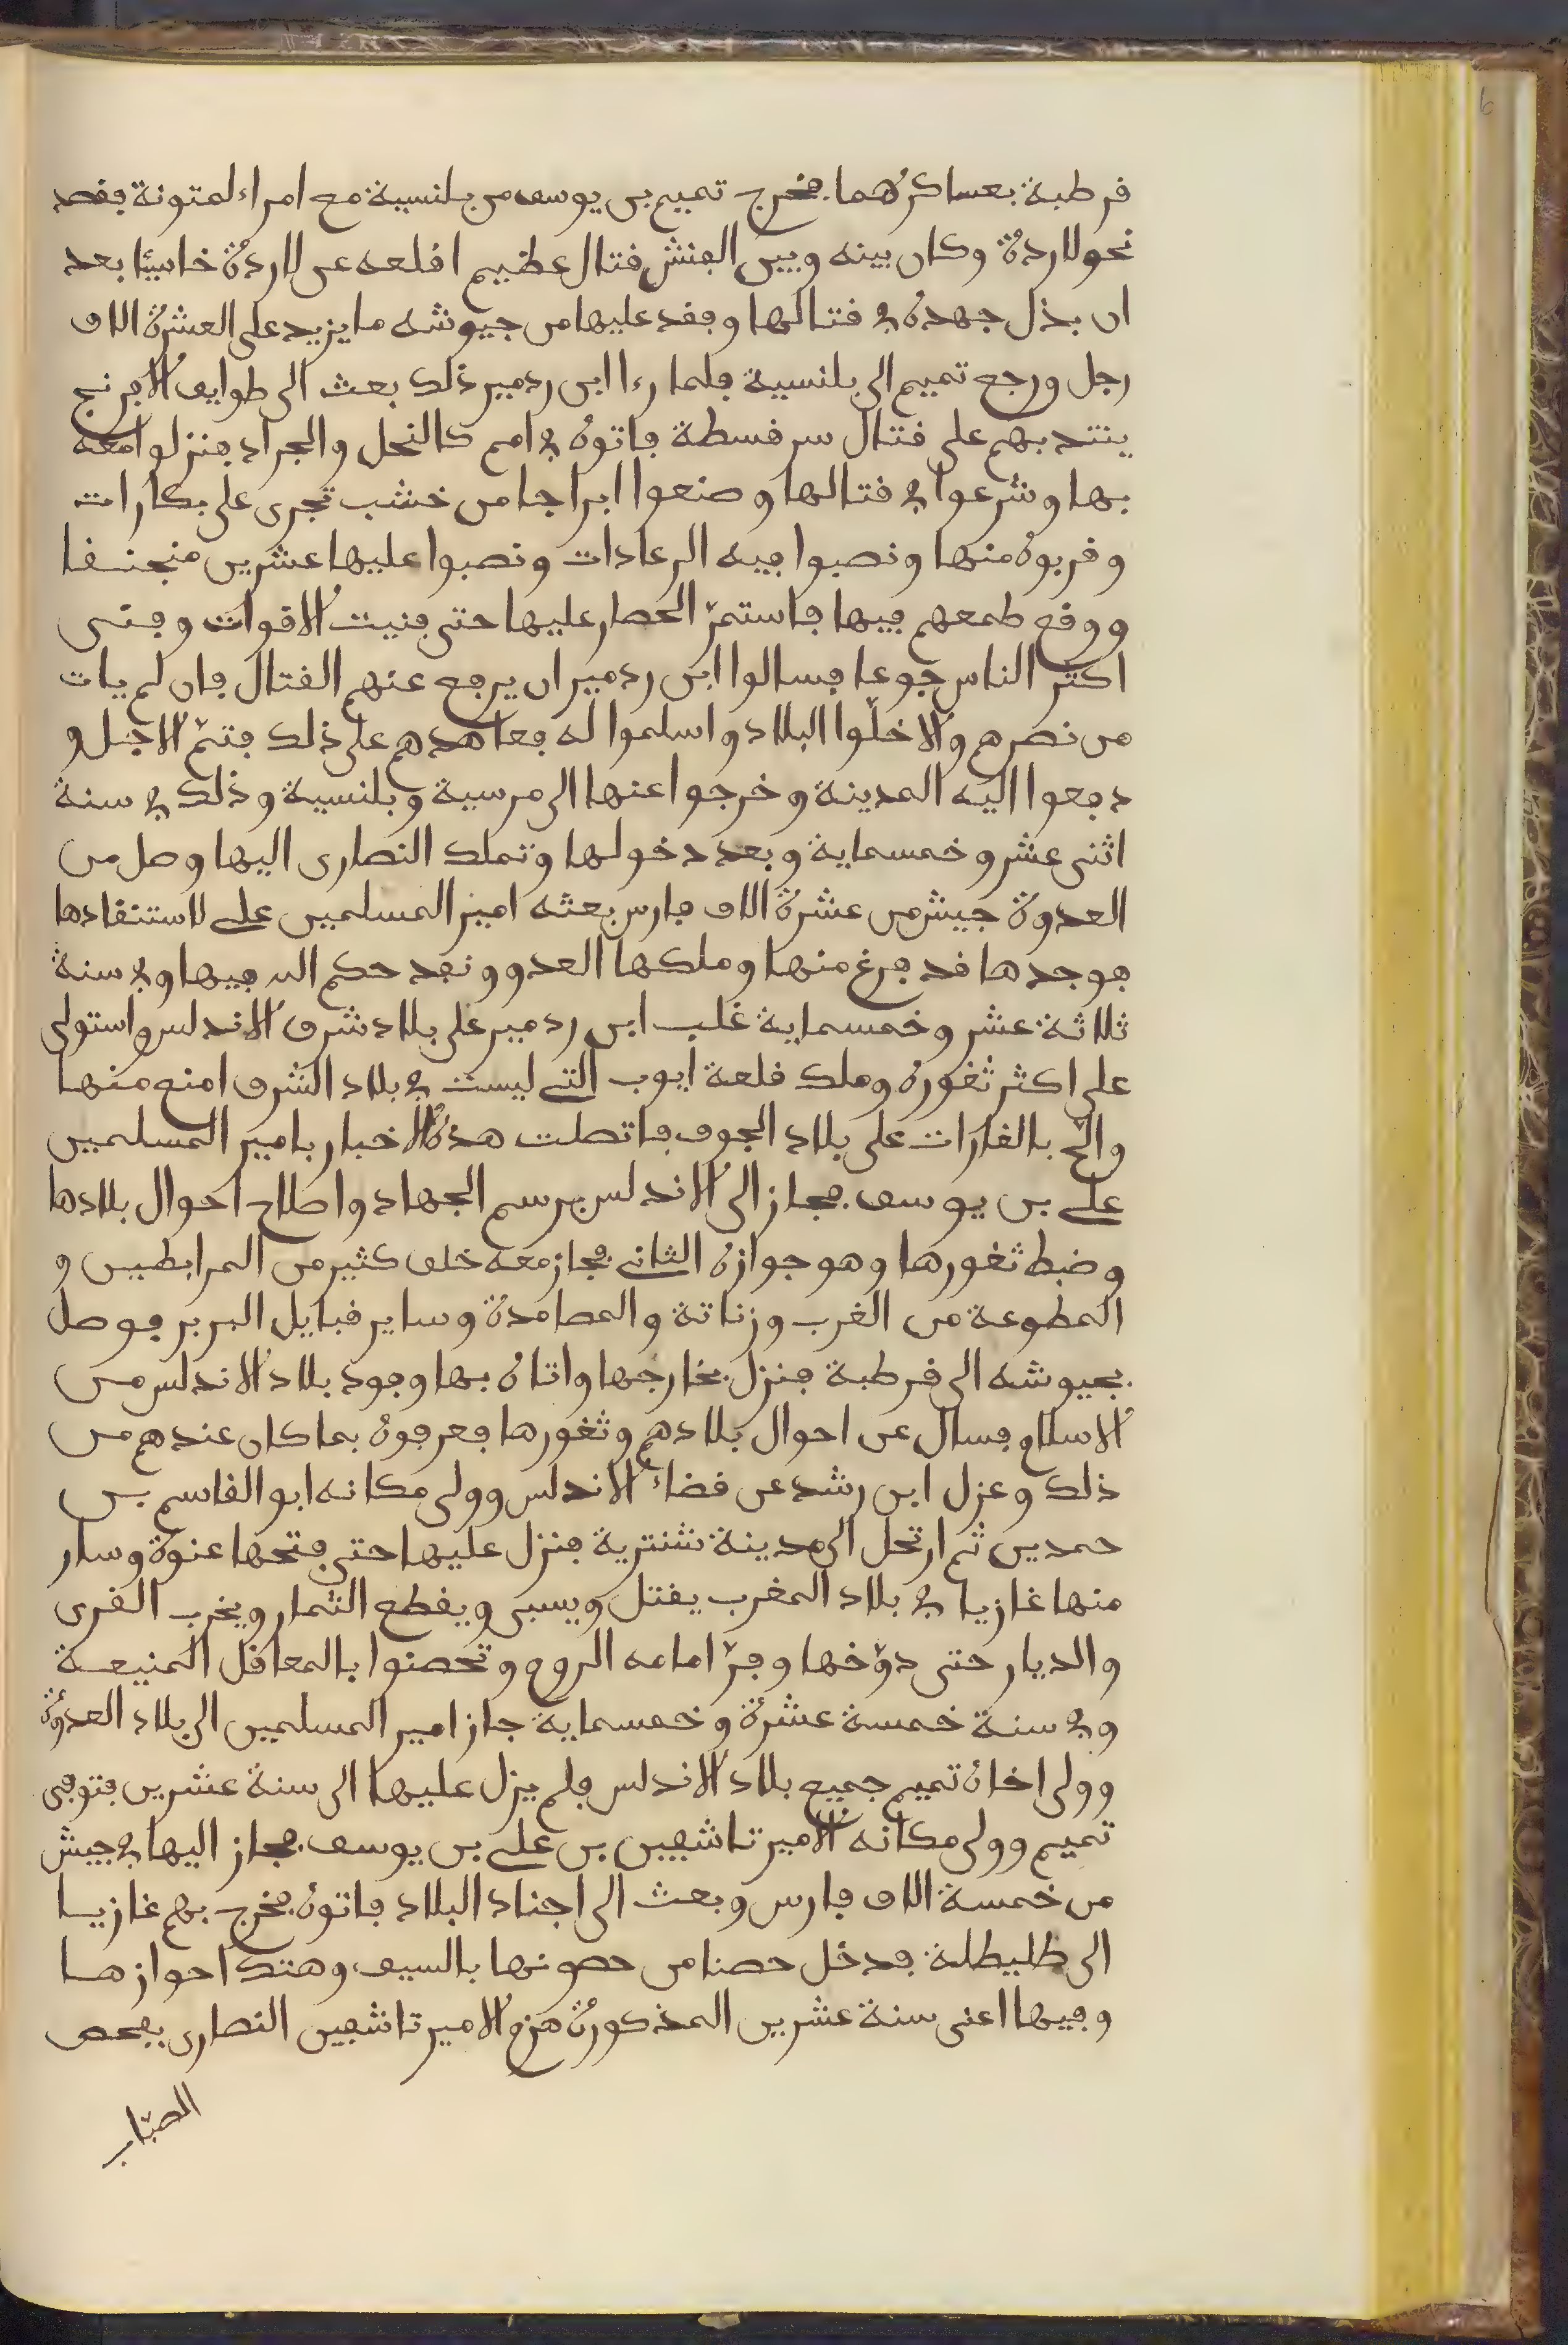 قرطبة بعساكرهما فخرج تميم بن يوسف من بلنسية مع امراء لمتونة فقصد
نحو لاردة وكان بينه وبين الفنش قتال عظيم اقلعه عن لاردة خاسئا بعد
ان بذل جهده في قتالها وفقد عليها من جيوشه ما يزيد على العشرة الاف
رجل ورجع تميم الى بلنسية فلما رءا ابن ردمير ذلك بعث الى طوايف الافرنج
ينتدبهم على قتال سرقسطة فاتوه في امم كالنحل والجراد فنزلوا معه
بها وشرعوا في قتالها وصنعوا ابراجا من خشب تجرى على بكارات
وقربوه منها ونصبوا فيه الرعادات ونصبوا عليها عشرين منجنقا
ووقع طمعهم فيها فاستمرّ الحصار عليها حتى فنيت الاقوات وفنى
اكثر الناس جوعا فسالوا ابن ردمير ان يرفع عنهم القتال فان لم يات
من نصرهم والا خلّوا البلاد واسلموا له فعاهدهم على ذلك فتمّ الاجل و
دفعوا اليه المدينة وخرجوا عنها الى مرسية وبلنسية وذلك في سنة
اثنى عشر وخمسماية وبعد دخولها وتملك النصارى اليها وصل من
العدوة جيش من عشرة الاف فارس بعثه امير المسلمين على لاستنقاذها
فوجدها قد فرغ منها وملكها العدو ونفد حكم الله فيها وفي سنة
ثلاثة عشر وخمسماية غلب ابن ردمير على بلاد شرق الاندلس واستولى
على اكثر ثغوره وملك قلعة ايوب التى ليست في بلاد الشرق امنع منها
والحّ بالغارات على بلاد الجوف فاتصلت هذه الاخبار بامير المسلمين
على بن يوسف فجاز الى الاندلس برسم الجهاد واصلاح احوال بلادها
وضبط ثغورها وهو جوازه الثانى فجاز معه خلق كثير من المرابطين و
المطوعة من الغرب وزناتة والمصامدة وساير قبايل البربر فوصل
بجيوشه الى قرطبة فنزل بخارجها واتاه بها وفود بلاد الاندلس من
الاسلام فسال عن احوال بلادهم وثغورها فعرفوه بما كان عندهم من
ذلك وعزل ابن رشد عن قضاء الاندلس وولى مكانه ابو القاسم بن
حمدين ثم ارتحل الى مدينة شنترية فنزل عليها حتى فتحها عنوة وسار
منها غازيا في بلاد المغرب يقتل ويسبى ويقطع الثمار ويخرب القرى
والديار حتى دوّخها وفرّ امامه الروم وتحصنوا بالمعاقل المنيعة
وفي سنة خمسة عشرة وخمسماية جاز امير المسلمين الى بلاد العدوة
وولى اخاه تميم جميع بلاد الاندلس فلم يزل عليها الى سنة عشرين فتوفى
تميم وولى مكانه الامير تاشفين بن على بن يوسف فجاز اليها في جيش
من خمسة الاف فارس وبعث الى اجناد البلاد فاتوه فخرج بهم غازيا
الى طليطلة فدخل حصنا من حصونها بالسيف وهتك احوازها
وفيها اعنى سنة عشرين المذكورة هزم الامير تاشفين النصارى بفحص
الصبّاب